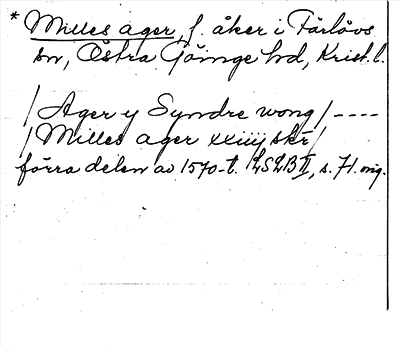 * Milles ager, f. åker i Färlövs
sn, Östra Göinge hd, Krist. l.
/ Ager y Syndre wong / ----
/ Milles ager xxiiij skr /
förra delen av 1570-t. LSLB II, s. 71. orig.